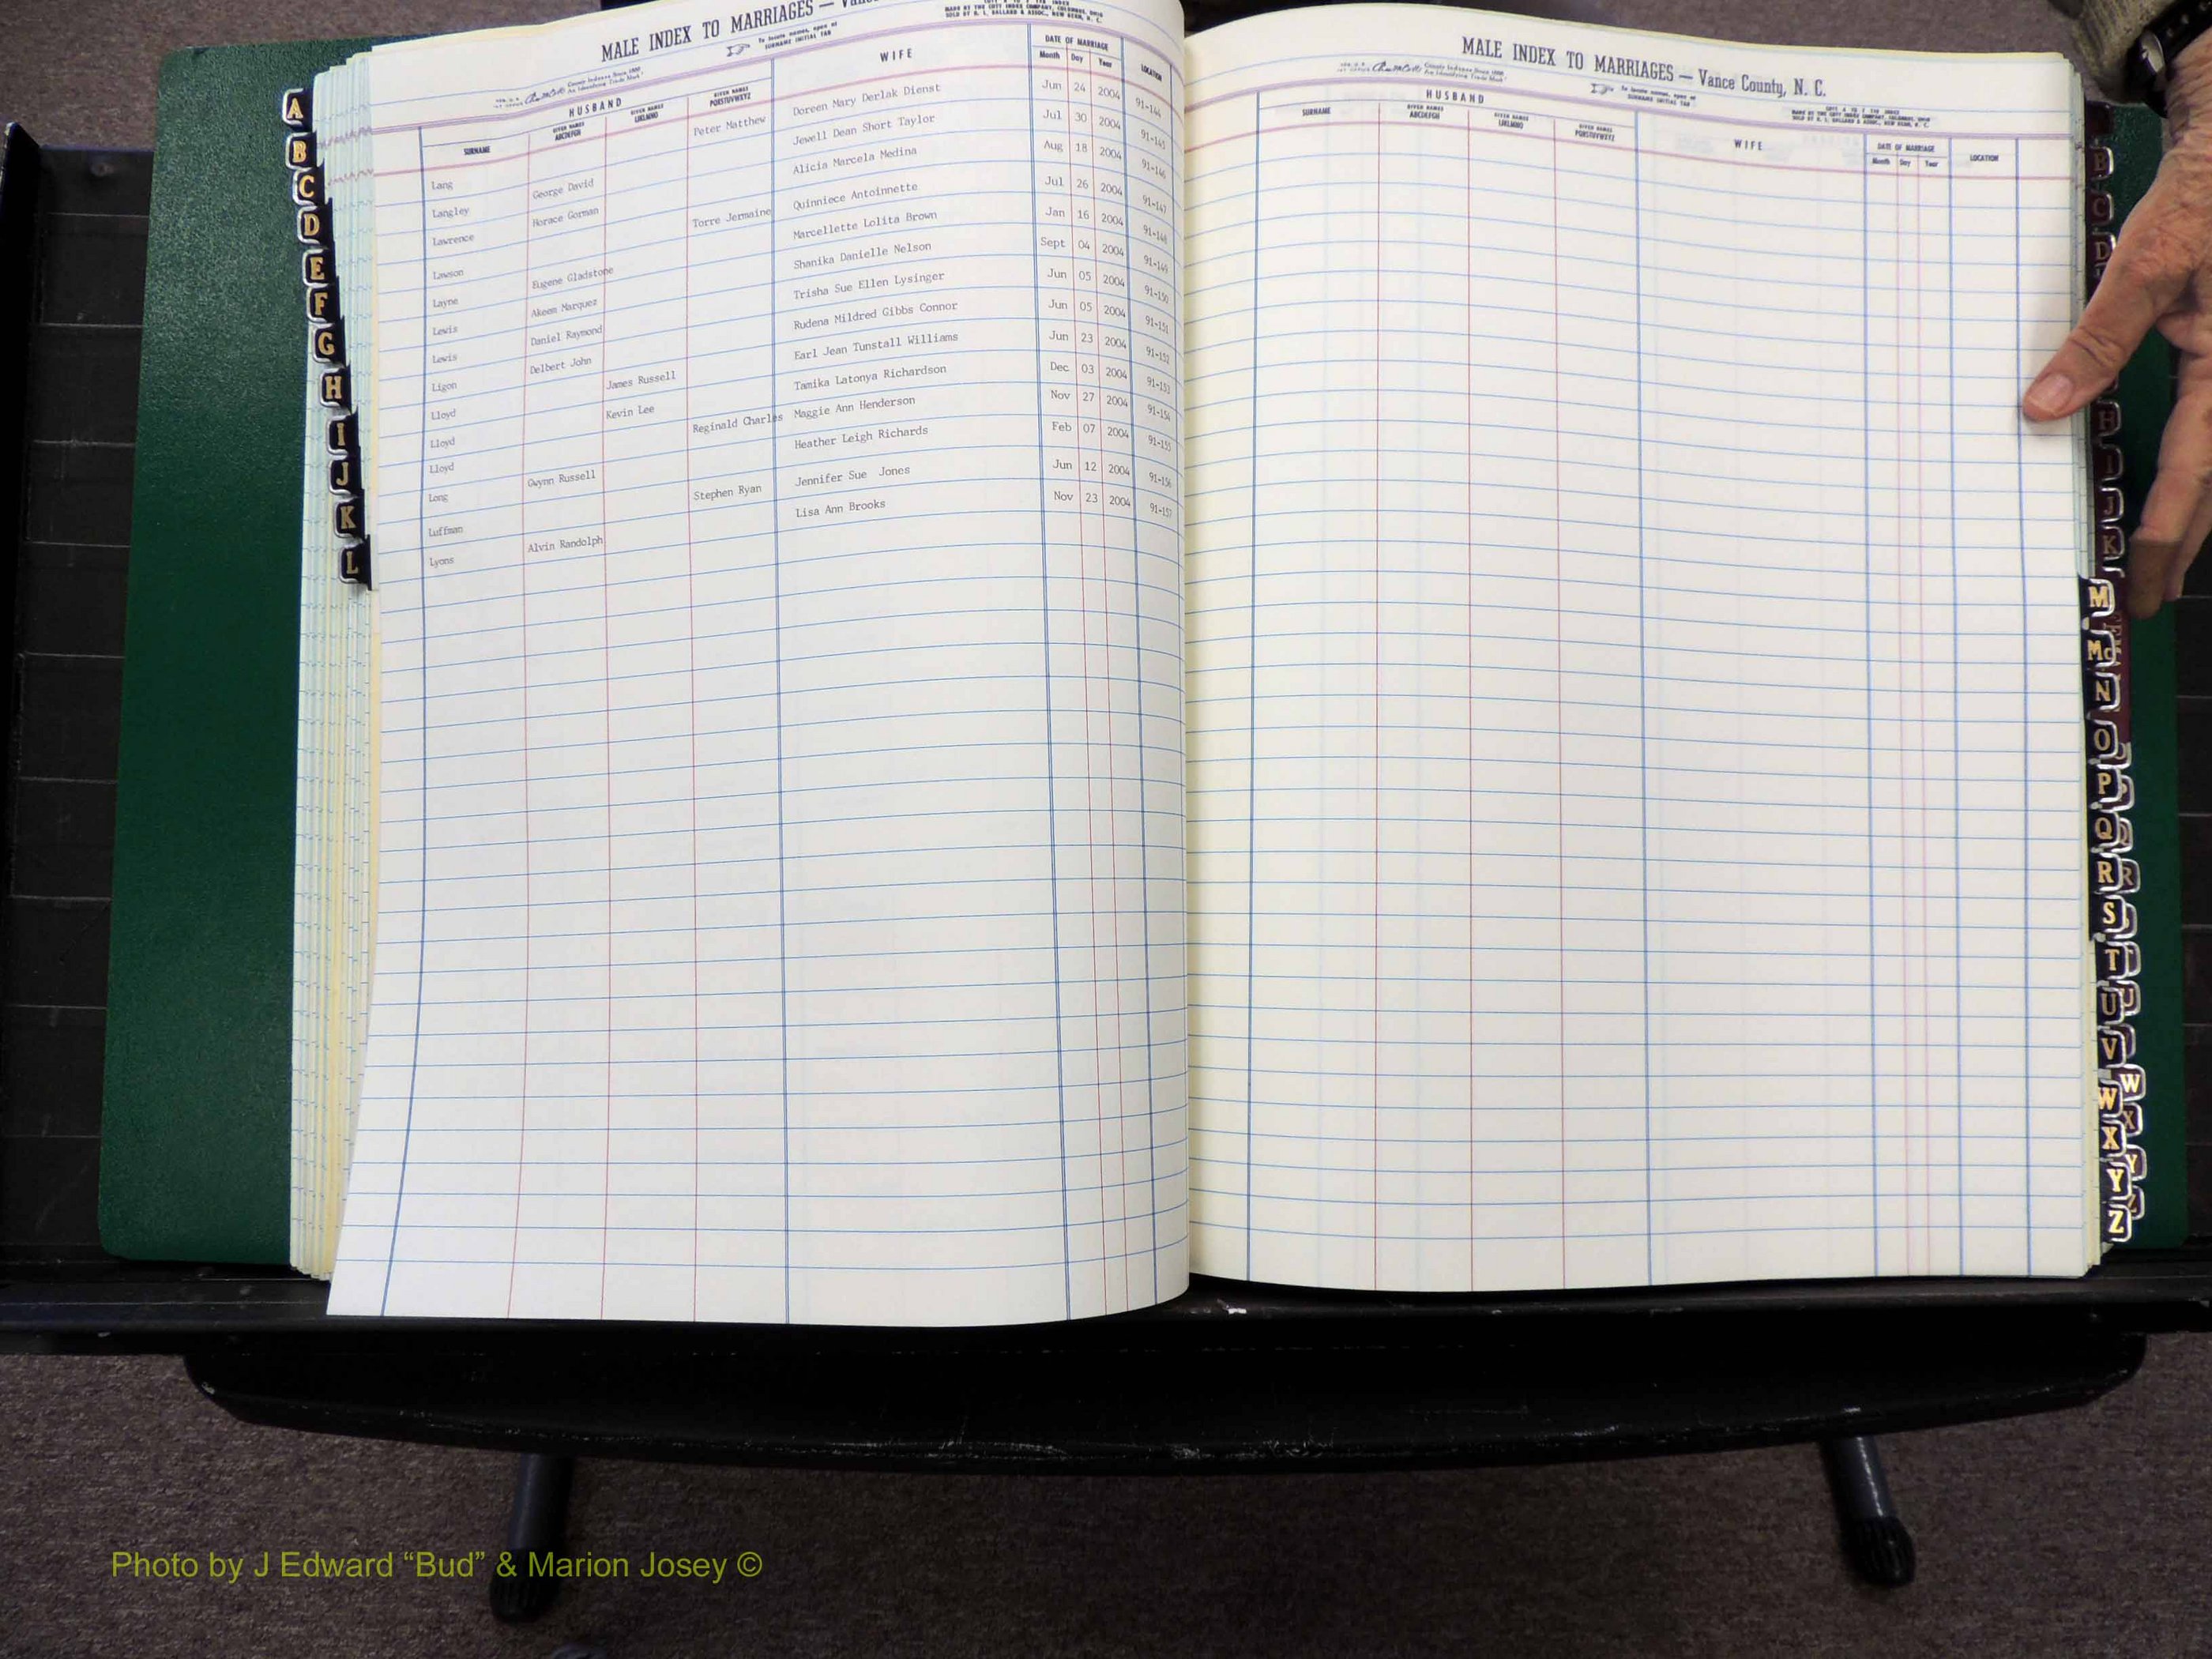 MALE INDEX TO MARRIAGES —
To locate names, open at
SURNAME INITIAL TAB
MADE BY THE COTT INDEX COMPANY, COLUMBUS, OHIO
HUSBAND
WIFE
DATE OF MARRIAGE
LOCATION
SURNAME
GIVEN NAMES ABCDEFGH
GIVEN NAMES IJKLMNO
GIVEN NAMES PQRSTUVWXYZ
Month Day Year
Lang Peter Matthew Doreen Mary Derlak Dienst Jun 24 2004 91-144
Langley George David Jewell Dean Short Taylor Jul 30 2004 91-145
Lawrence Horace Gorman Alicia Marcela Medina Aug 18 2004 91-146
Lawson Torre Jermaine Quinniece Antoinnette Jul 26 2004 91-147
Layne Eugene Gladstone Marcellette Lolita Brown Jan 16 2004 91-148
Lewis Akeem Marquez Shanika Danielle Nelson Sept 04 2004 91-149
Lewis Daniel Raymond Trisha Sue Ellen Lysinger Jun 05 2004 91-150
Ligon Delbert John Rudena Mildred Gibbs Connor Jun 05 2004 91-151
Lloyd James Russell Earl Jean Tunstall Williams Jun 23 2004 91-152
Lloyd Kevin Lee Tamika Latonya Richardson Dec 03 2004 91-153
Lloyd Reginald Charles Maggie Ann Henderson Nov 27 2004 91-154
Long Gwynn Russell Heather Leigh Richards Feb 07 2004 91-155
Luffman Stephen Ryan Jennifer Sue Jones Jun 12 2004 91-156
Lyons Alvin Randolph Lisa Ann Brooks Nov 23 2004 91-157
A
B
C
D
E
F
G
H
I
J
K
L
MALE INDEX TO MARRIAGES — Vance County, N. C.
To locate names, open at
SURNAME INITIAL TAB
HUSBAND
SURNAME
GIVEN NAMES ABCDEFGH
GIVEN NAMES IJKLMNO
GIVEN NAMES PQRSTUVWXYZ
WIFE
DATE OF MARRIAGE
Month Day Year
LOCATION
B
C
D
H
I
J
K
M
Mc
N
O
P
Q
R
S
T
U
V
W
X
Y
Z
Photo by J Edward “Bud” & Marion Josey ©